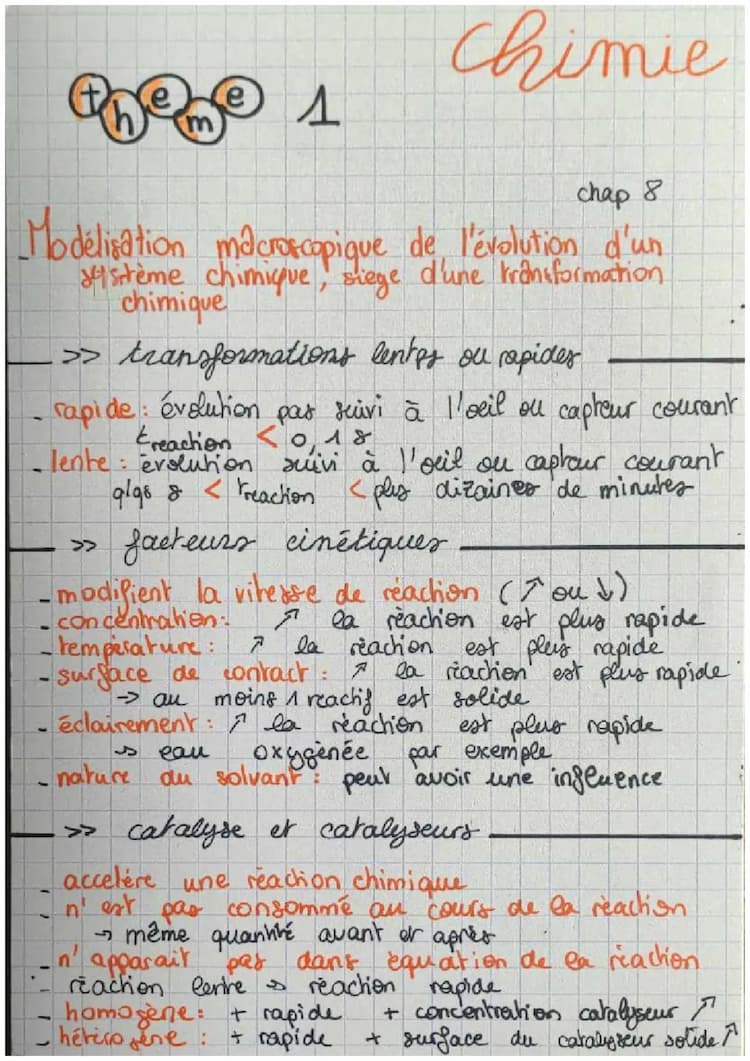 Chimie
theme 1
chap 8
Modélisation macroscopique de l'évolution d'un
système chimique, siege d'une transformation
chimique
>> transformations lentes ou rapides
- rapide : évolution pas suivi à l'oeil ou capteur courant
t reaction < 0,1 s
- lente : évolution suivi à l'oeil ou capteur courant
qlqs s < t reaction < plus dizaines de minutes
>> facteurs cinétiques
- modifient la vitesse de réaction (↗ ou ↓)
- concentration : ↗ la réaction est plus rapide
- température : ↗ la réaction est plus rapide
- surface de contact : ↗ la réaction est plus rapide
→ au moins 1 reactif est solide
- éclairement : ↗ la réaction est plus rapide
→ eau oxygénée par exemple
- nature du solvant : peut avoir une influence
>> catalyse et catalyseurs
- accelére une réaction chimique
- n'est pas consommé au cours de la réaction
→ même quantité avant et après
- n'apparait pas dans équation de la réaction
- réaction lente → réaction rapide
- homogène : + rapide + concentration catalyseur ↗
- hétérogène : + rapide + surface du catalyseur solide ↗